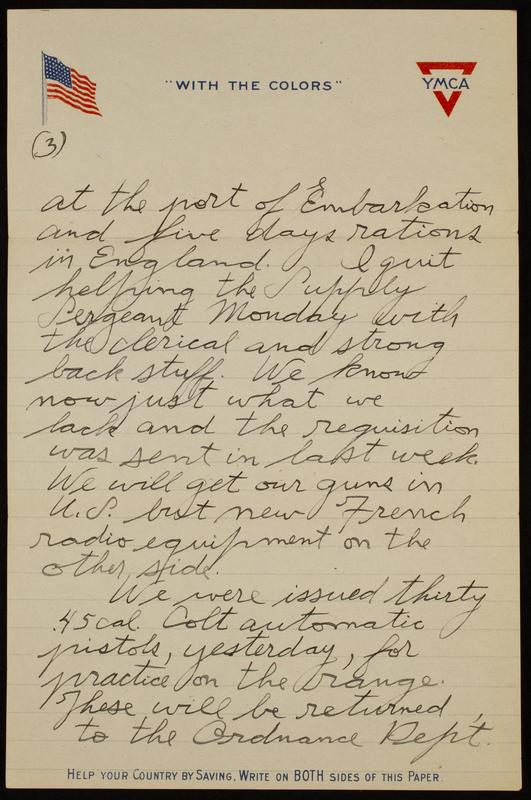 "WITH THE COLORS"
YMCA
(3)
at the port of Embarkation
and five days rations
in England. I quit
helping the Supply
Sergeant Monday with
the clerical and strong
back stuff. We know
now just what we
lack and the requisition
was sent in last week.
We will get our guns in
U.S. but new French
radio equipment on the
other side.
We were issued thirty
.45 cal. Colt automatic
pistols, yesterday, for
practice on the range.
These will be returned
to the Ordnance Dep't.
HELP YOUR COUNTRY BY SAVING, WRITE ON BOTH SIDES OF THIS PAPER.